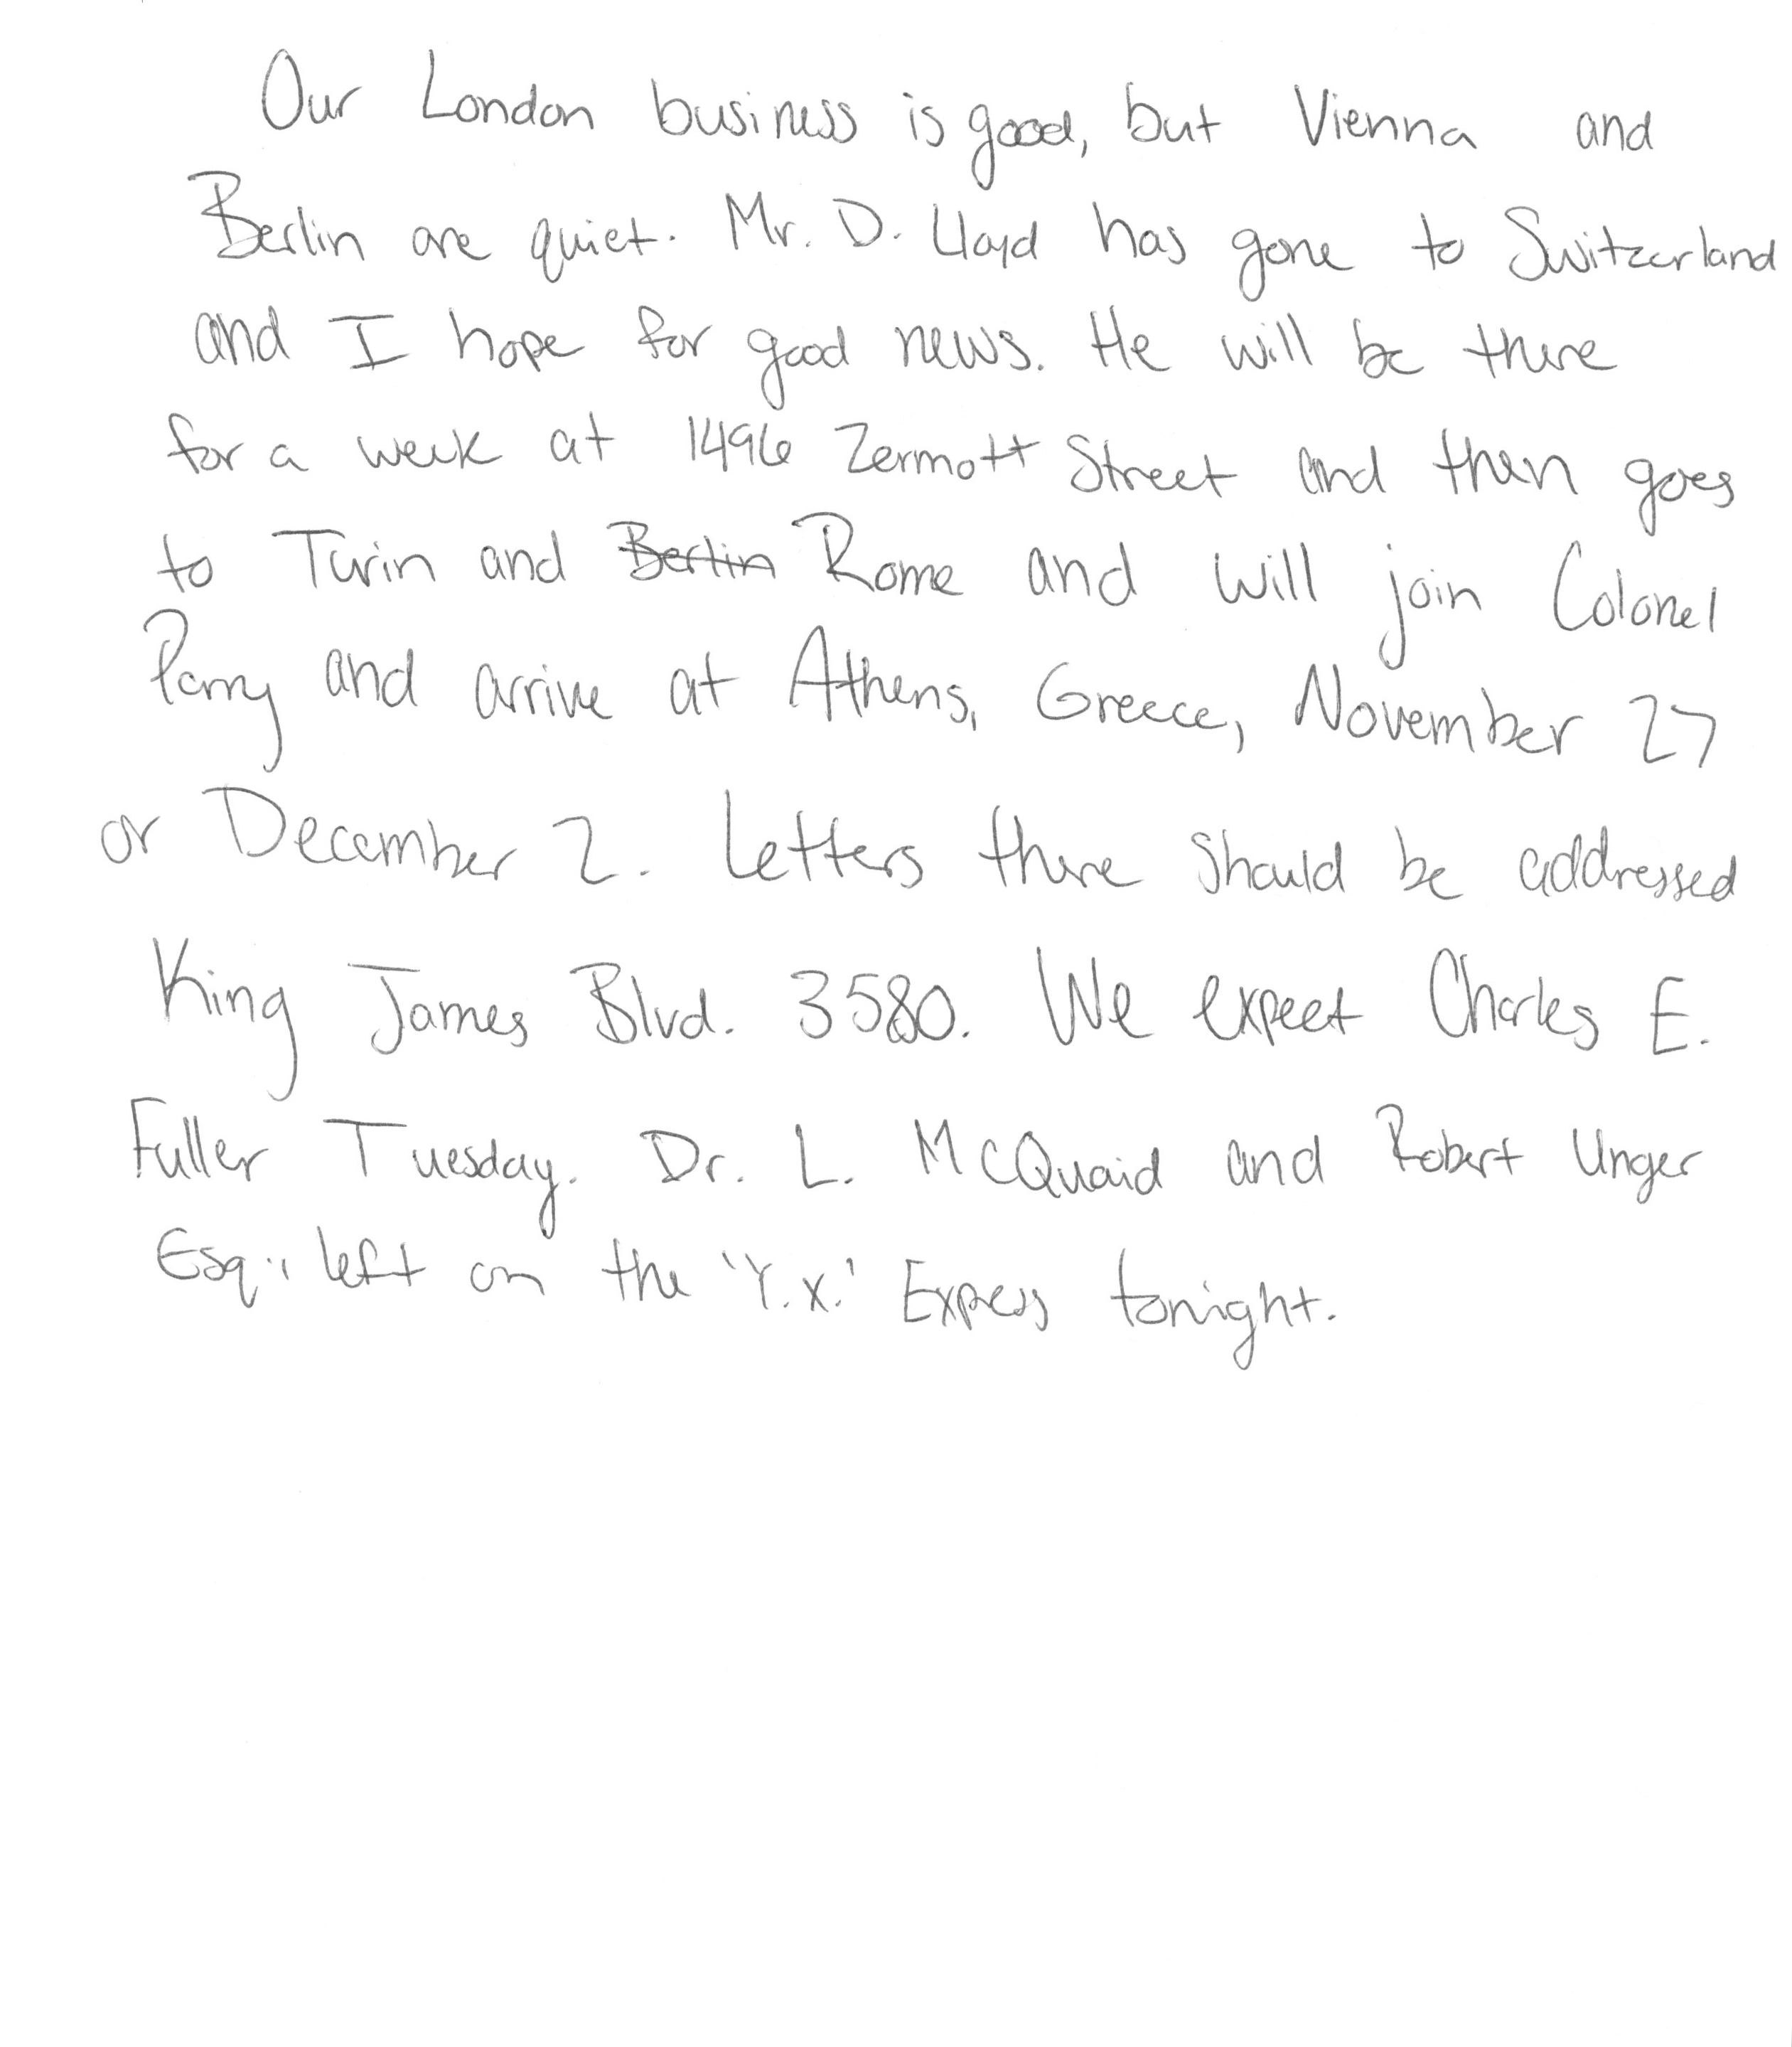 Our London business is good, but Vienna and
Berlin are quiet. Mr. D. Lloyd has gone to Switzerland
and I hope for good news. He will be there
for a week at 1496 Zermott Street and then goes
to Turin and Berlin Rome and will join Colonel
Parry and arrive at Athens, Greece, November 27
or December 2. Letters there should be addressed
King James Blvd. 3580. We expect Charles E.
Fuller Tuesday. Dr. L. McQuaid and Robert Unger
Esq., left on the 'Y.X.' Express tonight.